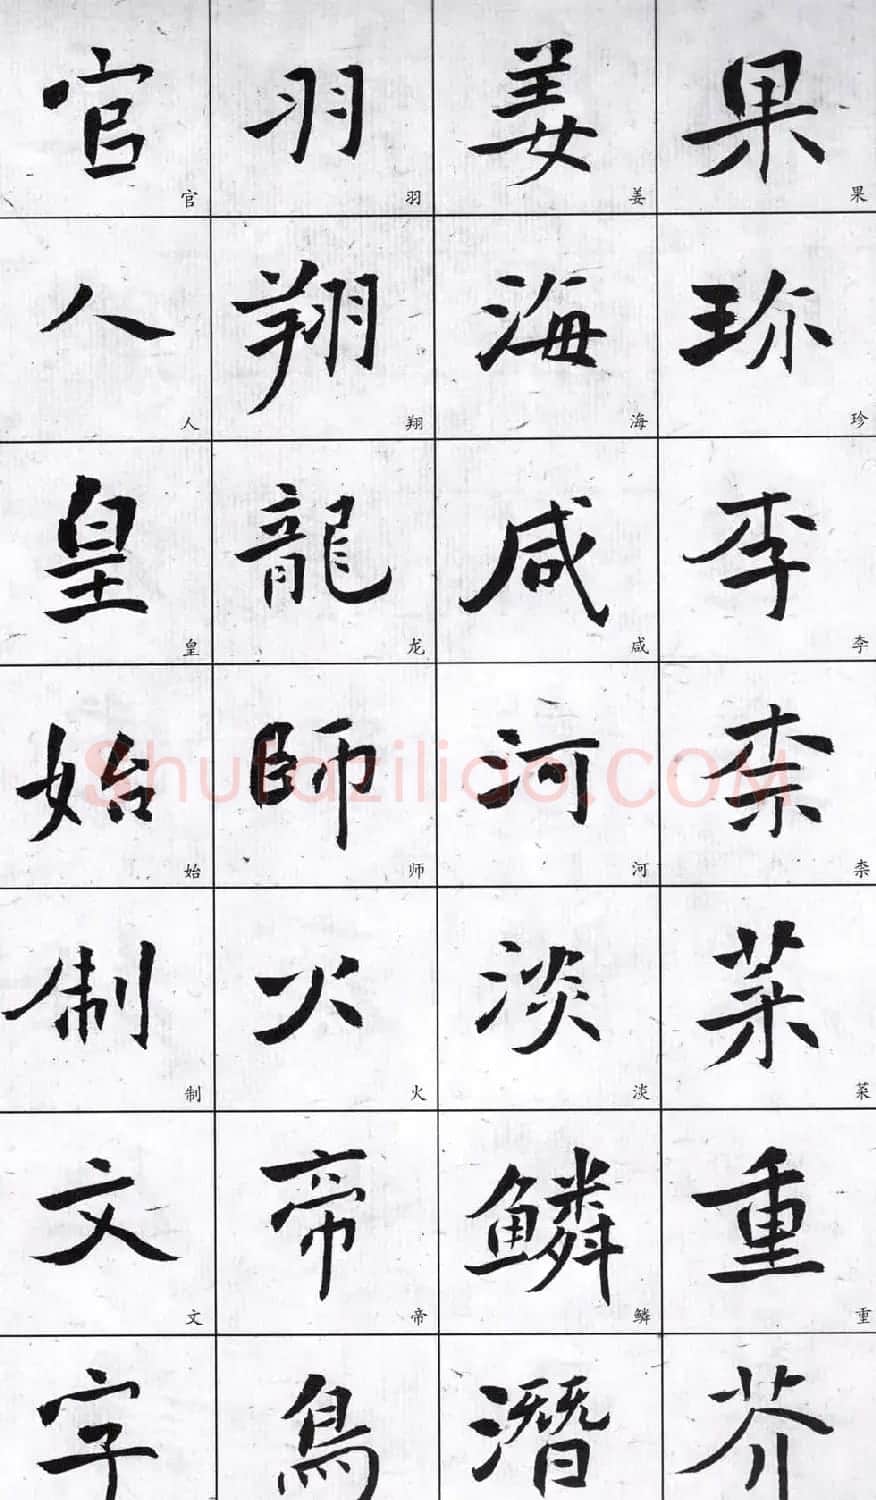 果珎李柰菜重芥
果珍李柰菜重
姜海咸河淡鳞潛
姜海咸河淡鳞
羽翔龍師火帝鳥
羽翔龙师火帝
官人皇始制文字
官人皇始制文
Shufaziliao.COM